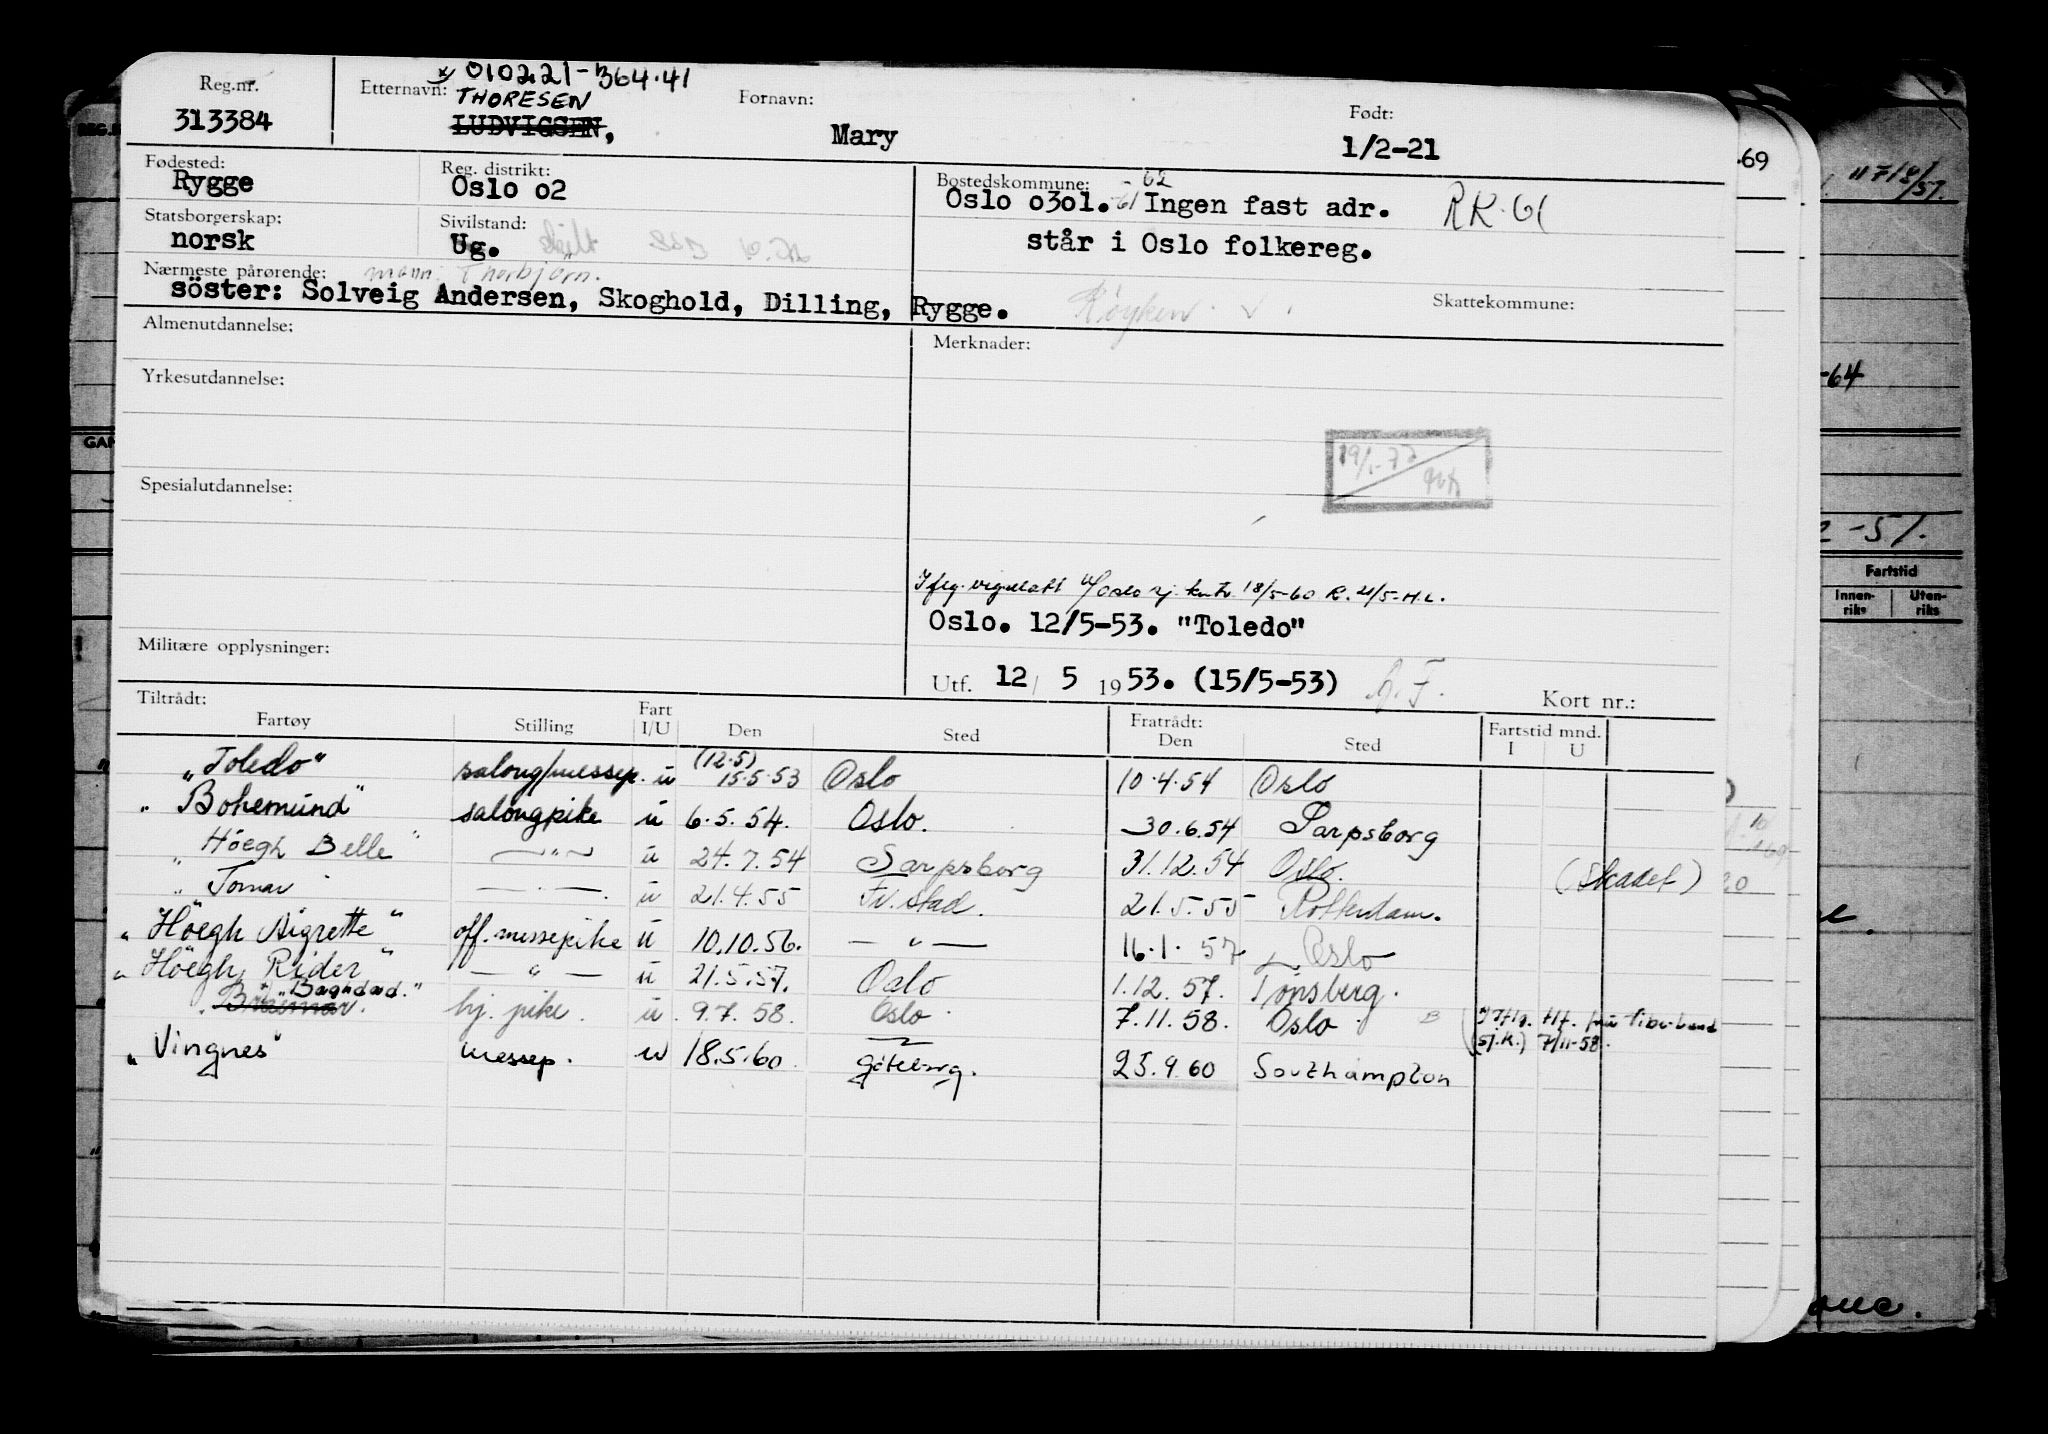 010221-36441
Reg.nr. Etternavn: THORESEN Fornavn: Født:
313384 LUDVIGSEN, Mary 1/2-21
Fødested: Reg. distrikt: Bostedskommune: 62
Rygge Oslo o2 Oslo o3o1. -61 Ingen fast adr. RK.61
Statsborgerskap: Sivilstand:
norsk Ug. står i Oslo folkereg.
Nærmeste pårørende: mann: Thorbjörn.
söster: Solveig Andersen, Skoghold, Dilling, Rygge. Røyken Skattekommune:
Almenutdannelse: Merknader:
Yrkesutdannelse:
19/1-72
Spesialutdannelse:
Oslo 18/5-60 R. 21/5-H.L.
Oslo. 12/5-53. "Toledo"
Militære opplysninger:
Utf. 12/ 5 1953. (15/5-53) Kort nr.:
Tiltrådt: Fratrådt: Fartstid mnd.
Fartøy Stilling Fart I/U Den Sted Den Sted I U
"Toledo" salong/messep. u (12.5) 15.5.53 Oslo 10.4.54 Oslo
"Bohemund" salongpike u 6.5.54. Oslo. 30.6.54 Sarpsborg
"Höegh Belle" —"— u 24.7.54 Sarpsborg 31.12.54 Oslo. (Skadet)
"Tomar" —"— u 21.4.55 Fr.stad. 21.5.55 Rotterdam.
"Höegh Aigrette" off.messepike u 10.10.56. —"— 16.1.57 Oslo
"Höegh Rider" —"— u 21.5.57. Oslo 1.12.57. Tønsberg.
"Baghdad." hj. pike. u 9.7.58. Oslo 7.11.58. Oslo
(sj.k.) 7/11-58.
"Vingnes" messep. u 18.5.60 Göteborg. 23.9.60 Southampton
69
-64
2-51.
Fartstid
Innen-riks Uten-riks